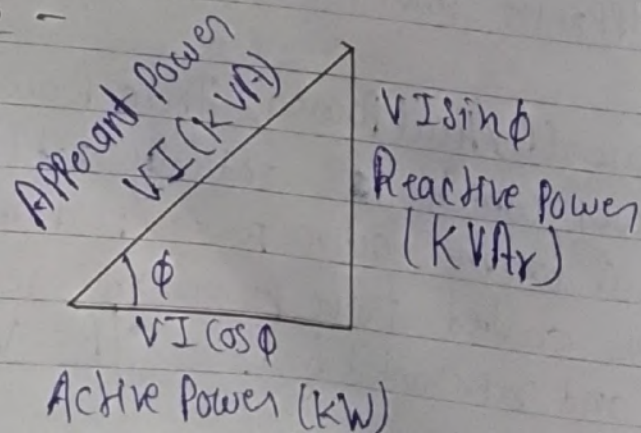 Apperant Power
VI (KVA)
VI sinϕ
Reactive Power
(KVAr)
ϕ
VI Cosϕ
Active Power (KW)